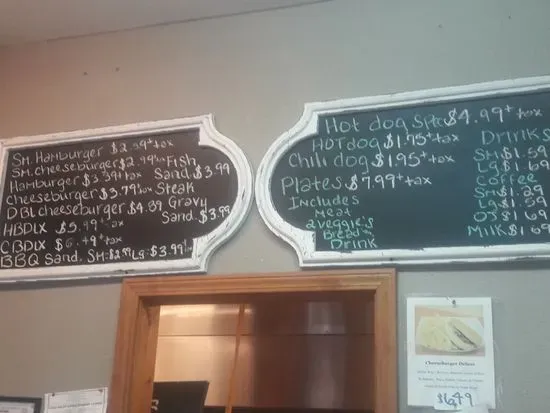 SM Hamburger $2.59+tax
SM.cheeseburger $2.99+tax Fish
Hamburger $3.39+tax Sand. $3.99
Cheeseburger $3.79+tax Steak
DBLcheeseburger $4.89 Gravy
HBDLX $5.99+tax Sand. $3.99
CBDLX $6.49+tax
BBQ Sand. SM:$2.99 Lg:$3.99
Hot dog Spc $4.99+tax
HOTdog $1.75+tax
Chili dog $1.95+tax
Plates $7.99+tax
Includes
Meat
2 veggie's
Bread
Drink
Drinks
SM $1.59
Lg $1.69
Coffee
SM $1.29
Lg $1.59
OJ $1.69
Milk $1.69
Cheeseburger Deluxe
$6.49